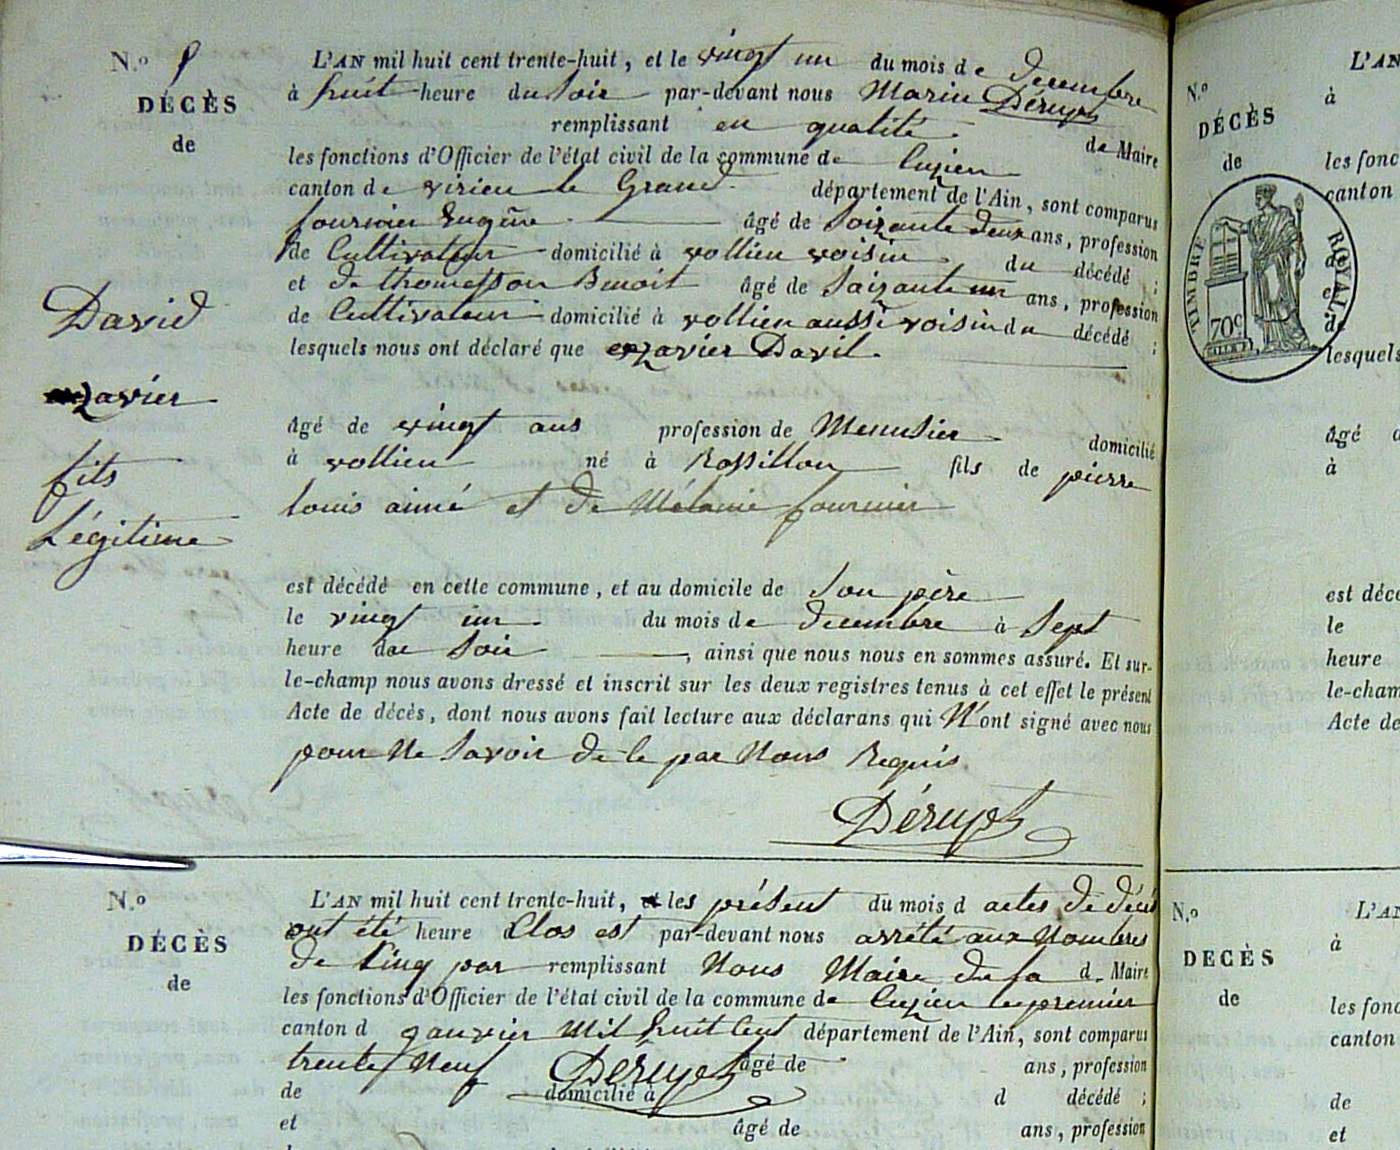 N.º 5
DÉCÈS
de
David
xavier
fils
Légitime
L'AN mil huit cent trente-huit, et le vingt un du mois de decembre
à huit heure du soir par-devant nous Marin Dérupt
remplissant en qualité de Maire
les fonctions d'Officier de l'état civil de la commune de Cuzieu
canton de virieu le Grand département de l'Ain, sont comparus
fournier Eugène âgé de Soizante deux ans, profession
de Cultivateur domicilié à vollien voisin du décédé ;
et de thomasson Benoit âgé de Saizante un ans, profession
de Cultivateur domicilié à vollien aussi voisin du décédé ;
lesquels nous ont déclaré que xavier David
âgé de vingt ans profession de Menusier domicilié
à vollien né à Rossillon fils de pierre
louis aimé et de Mélanie fournier
est décédé en cette commune, et au domicile de son père
le vingt un du mois de decembre à Sept
heure du Soir, ainsi que nous nous en sommes assuré. Et sur-
le-champ nous avons dressé et inscrit sur les deux registres tenus à cet effet le présent
Acte de décès, dont nous avons fait lecture aux déclarans qui N'ont signé avec nous
pour Ne Savoir de le par Nous Requis
Dérupt
N.º
DÉCÈS
de
L'AN mil huit cent trente-huit, les présent du mois d actes de décès
ont été heure Clos est par-devant nous arrété aux Nombres
de Cinq par remplissant Nous Maire du d. Maire
les fonctions d'Officier de l'état civil de la commune de Cuzieu le premier
canton d janvier Mil huit Cent département de l'Ain, sont comparus
trente Neuf Dérupt âgé de ans, profession
de domicilié à d décédé ;
et âgé de ans, profession
L'AN
N.º
DÉCÈS
de
à
les fonc
canton
TIMBRE ROYAL
70c
de
lesquels
âgé d
à
est décé
le
heure
le-cham
Acte de
N.º
DÉCÈS
de
L'AN
à
les fonc
canton
de
et